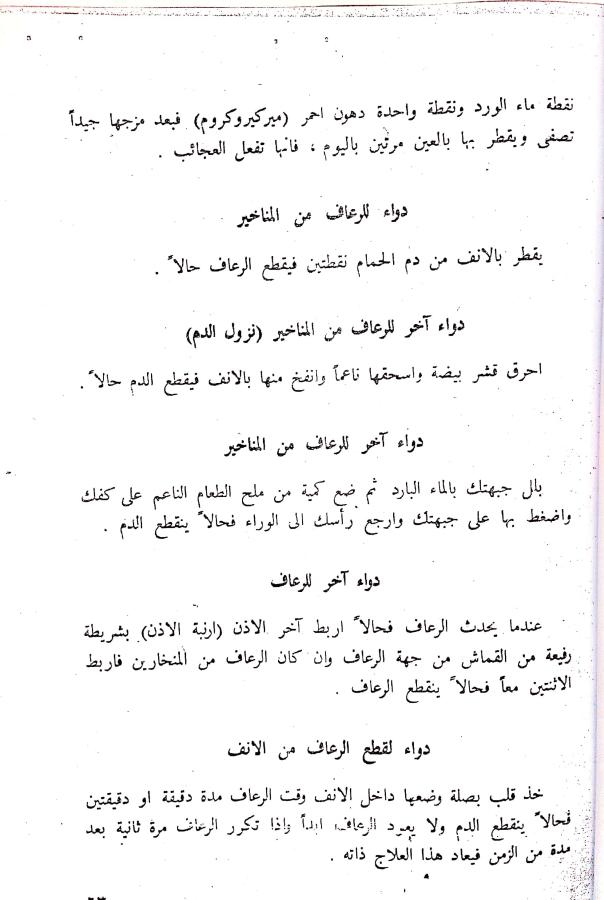 نقطة ماء الورد ونقطة واحدة دهون احمر (ميركيروكروم) فبعد مزجها جيداً
تصفى ويقطر بها بالعين مرتين باليوم ، فانها تفعل العجائب .
دواء للرعاف من المناخير
يقطر بالانف من دم الحمام نقطتين فيقطع الرعاف حالاً .
دواء آخر للرعاف من المناخير (نزول الدم)
احرق قشر بيضة واسحقها ناعماً وانفخ منها بالانف فيقطع الدم حالاً .
دواء آخر للرعاف من المناخير
بلل جبهتك بالماء البارد ثم ضع كمية من ملح الطعام الناعم على كفك
واضغط بها على جبهتك وارجع رأسك الى الوراء فحالاً ينقطع الدم .
دواء آخر للرعاف
عندما يحدث الرعاف فحالاً اربط آخر الاذن (ارنبة الاذن) بشريطة
رفيعة من القماش من جهة الرعاف وان كان الرعاف من المنخارين فاربط
الاثنتين معاً فحالاً ينقطع الرعاف .
دواء لقطع الرعاف من الانف
خذ قلب بصلة وضعها داخل الانف وقت الرعاف مدة دقيقة او دقيقتين
فحالاً ينقطع الدم ولا يعود الرعاف ابداً واذا تكرر الرعاف مرة ثانية بعد
مدة من الزمن فيعاد هذا العلاج ذاته .